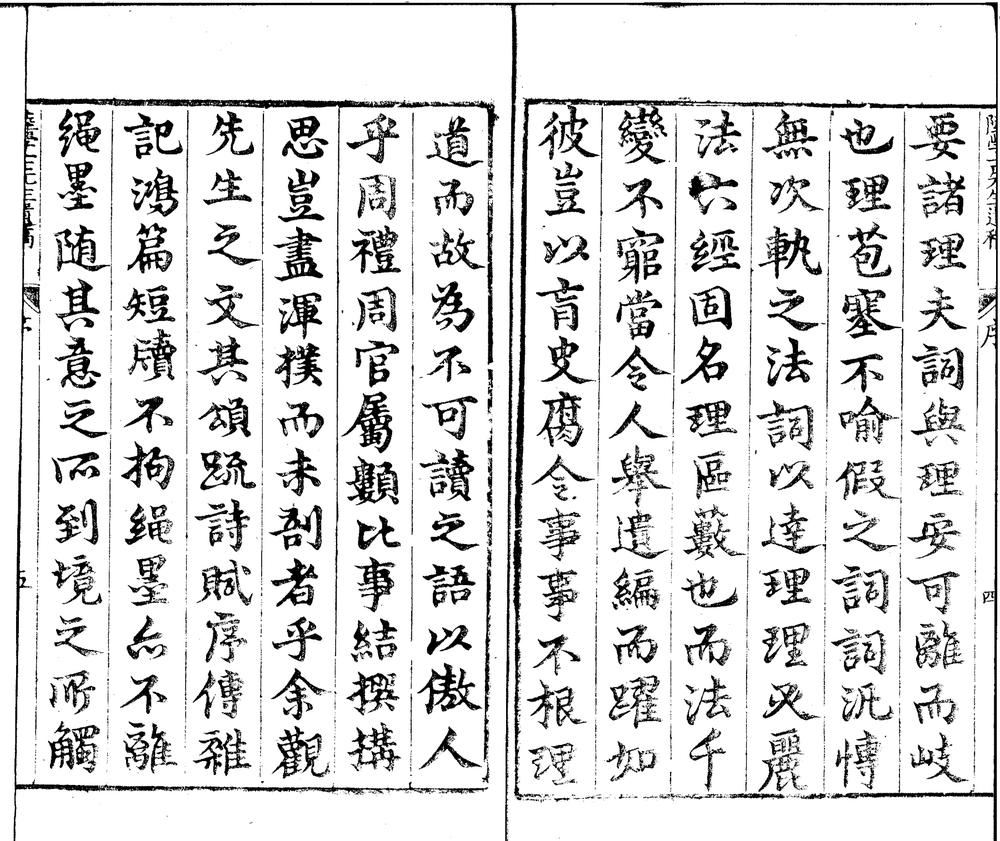 要諸理夫詞與理妥可離而岐
也理苞塞不喻假之詞詞汎愽
無次軌之法詞以達理理必麗
法六經固名理區藪也而法千
變不窮當令人舉遺編而躍如
彼豈以肓史腐令事事不根理
道而故為不可讀之語以傲人
乎周禮周官屬顰比事結撰搆
思豈盡渾撲而未刮者乎余觀
先生之文其頌䟽詩賦序傳雜
記鴻篇短牘不拘繩墨亦不離
繩墨随其意之所到境之所觸
序
四
五